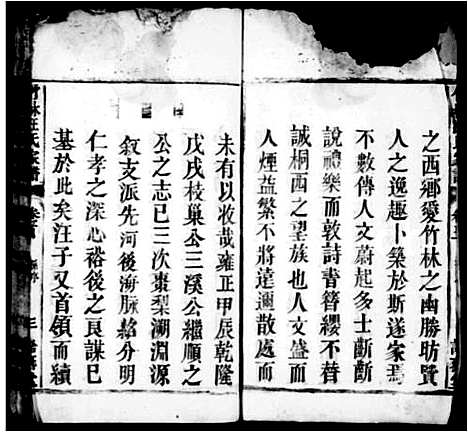 之西鄉愛竹林之幽勝昉賢
人之逸趣卜築於斯遂家焉
不數傳人文蔚起多士斷斷
說禮樂而敦詩書簪纓不替
誠桐西之望族也人文盛而
人煙益繁不將達邇散處而
未有以收哉雍正甲辰乾隆
戊戌枝巢公三溪公繼順之
公之志已三次棗梨溯淵源
敘支派先河後海脈絡分明
仁孝之深心裕後之良謀已
基於此矣汪子又首領而續
竹林汪氏宗譜
卷首
三